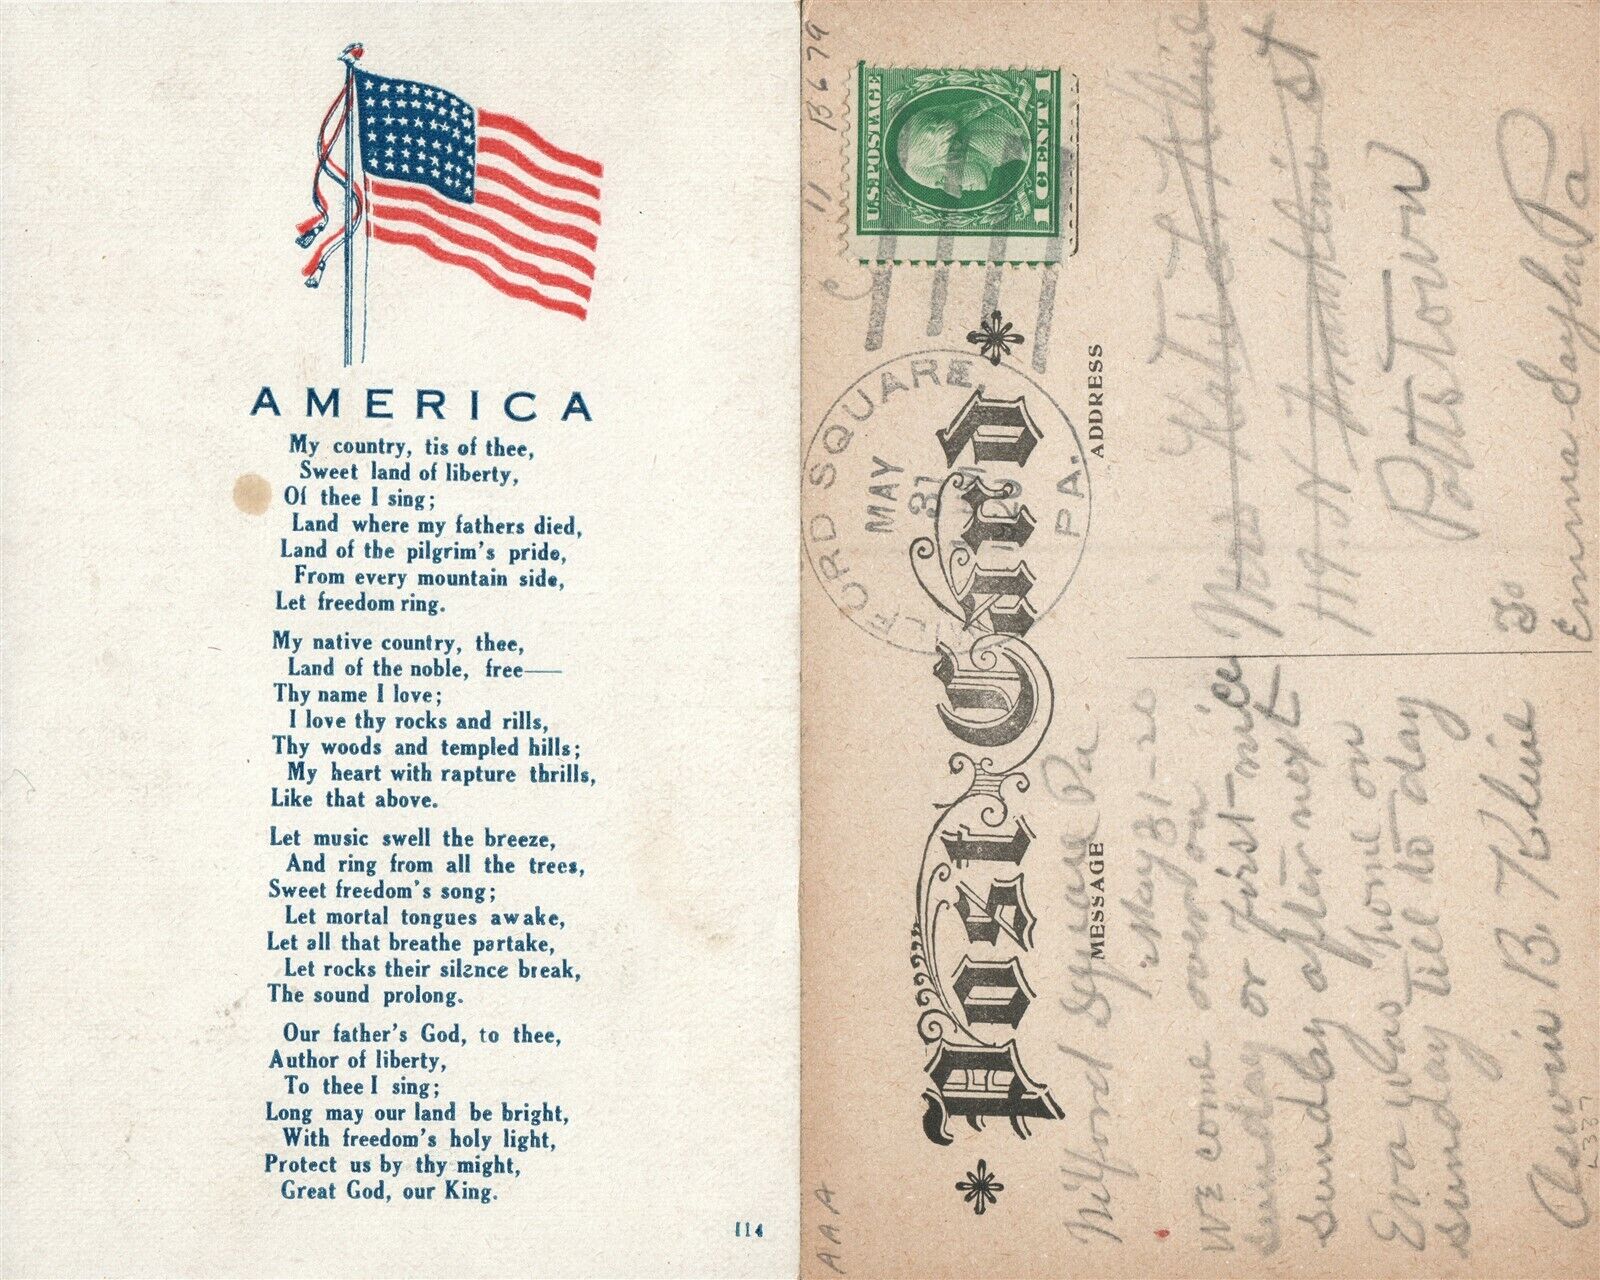 AMERICA
My country, tis of thee,
Sweet land of liberty,
Of thee I sing;
Land where my fathers died,
Land of the pilgrim's pride,
From every mountain side,
Let freedom ring.
My native country, thee,
Land of the noble, free—
Thy name I love;
I love thy rocks and rills,
Thy woods and templed hills;
My heart with rapture thrills,
Like that above.
Let music swell the breeze,
And ring from all the trees,
Sweet freedom's song;
Let mortal tongues awake,
Let all that breathe partake,
Let rocks their silence break,
The sound prolong.
Our father's God, to thee,
Author of liberty,
To thee I sing;
Long may our land be bright,
With freedom's holy light,
Protect us by thy might,
Great God, our King.
114
AAA
11 B679
U.S. POSTAGE
1 CENT 1
MILFORD SQUARE
MAY
31
PA.
Post Card
MESSAGE
ADDRESS
Milford Square Pa
May 31-20
We come over on
Sunday or first-nice
Sunday after next
Eva was home on
Sunday till to day
B. Kline
L337
Mrs Kline
119. N st
Pottstown
To
Emma Saylor Pa